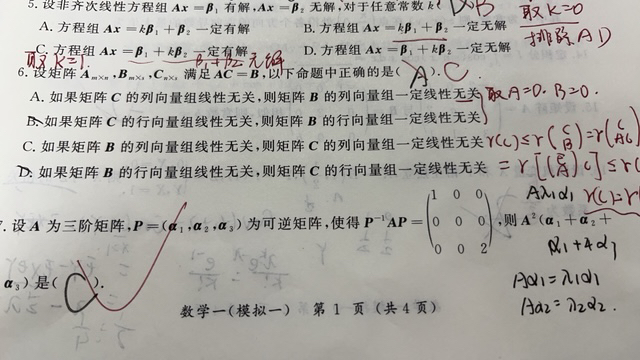 5. 设非齐次线性方程组 Ax=β₁ 有解,Ax=β₂ 无解,对于任意常数 k( D. B 取 K=0
A. 方程组 Ax=kβ₁+β₂ 一定有解 B. 方程组 Ax=kβ₁+β₂ 一定无解 排除 AD
C. 方程组 Ax=β₁+kβ₂ 一定有解 D. 方程组 Ax=β₁+kβ₂ 一定无解
取 K=1. β₁+β₂ 无解
6. 设矩阵 Aₘₓₙ,Bₘₓₛ,Cₙₓₛ 满足 AC=B,以下命题中正确的是( A ). C
A. 如果矩阵 C 的列向量组线性无关,则矩阵 B 的列向量组一定线性无关 取 A=0. B=0.
B. 如果矩阵 C 的行向量组线性无关,则矩阵 B 的行向量组一定线性无关
C. 如果矩阵 B 的列向量组线性无关,则矩阵 C 的列向量组一定线性无关 r(C)≤r(C B)=r(C AC)
D. 如果矩阵 B 的行向量组线性无关,则矩阵 C 的行向量组一定线性无关 =r[(E A)C]≤r(C
Aλ₁α₁ r(C)=r(
7. 设 A 为三阶矩阵,P=(α₁,α₂,α₃)为可逆矩阵,使得 P⁻¹AP=(1 0 0
0 0 0
0 0 2),则 A²(α₁+α₂+
α₁+4α₃
α₃)是( C ). Aα₁=λ₁α₁
Aα₂=λ₂α₂.
数学一(模拟一) 第 1 页 (共 4 页)